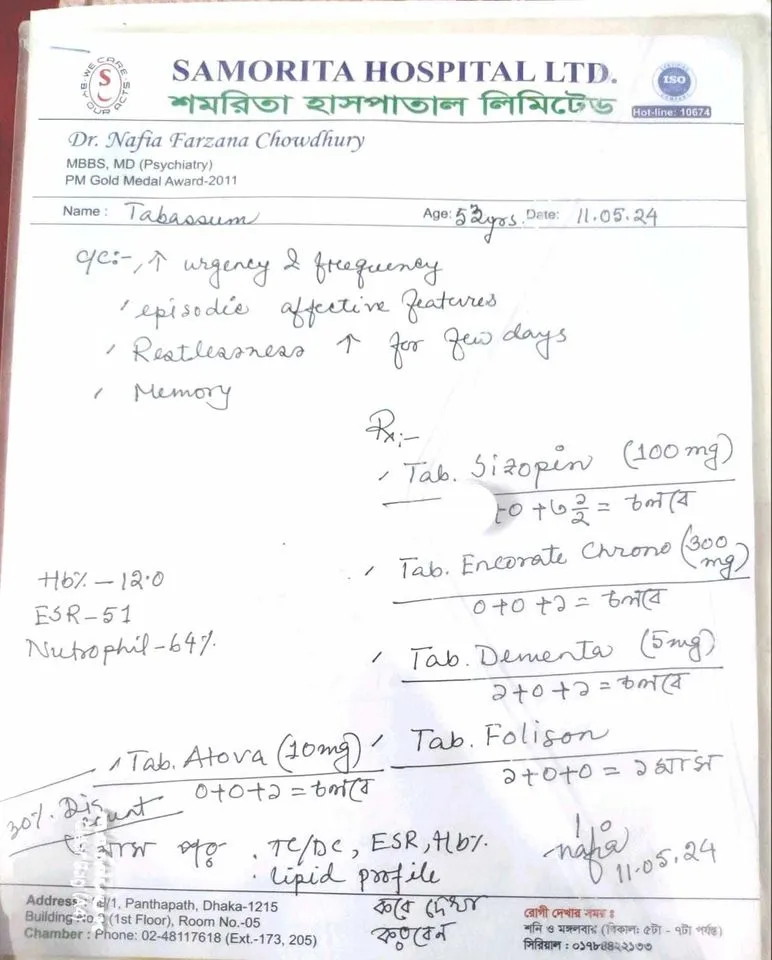 WE CARE BY OUR ACTS
S
SAMORITA HOSPITAL LTD.
শমরিতা হাসপাতাল লিমিটেড
ISO
Hot-line: 10674
Dr. Nafia Farzana Chowdhury
MBBS, MD (Psychiatry)
PM Gold Medal Award-2011
Name : Tabassum Age: 53yrs. Date: 11.05.24
C/C:-, ↑ urgency & frequency
episodic affective features
Restlessness ↑ for few days
Memory
Rx:-
Tab. Sizopin (100 mg)
চলবে
Tab. Encorate Chrono (300 mg)
0+0+১ = চলবে
Hb% - 12.0
ESR - 51
Nutrophil - 64%
Tab. Dementa (5mg)
১+0+১ = চলবে
Tab. Atova (10mg)
0+0+১ = চলবে
Tab. Folison
১+0+0 = ১ মাস
30% Discount
মাস পর . TC/DC, ESR, Hb%
: lipid profile
করে দেখা করবেন
nafia
11.05.24
Address: /1, Panthapath, Dhaka-1215
Building No. (1st Floor), Room No.-05
Chamber : Phone: 02-48117618 (Ext.-173, 205)
রোগী দেখার সময় ঃ
শনি ও মঙ্গলবার (বিকাল: ৫টা - ৭টা পর্যন্ত)
সিরিয়াল : ০১৭৮৪৪২২১৩৩